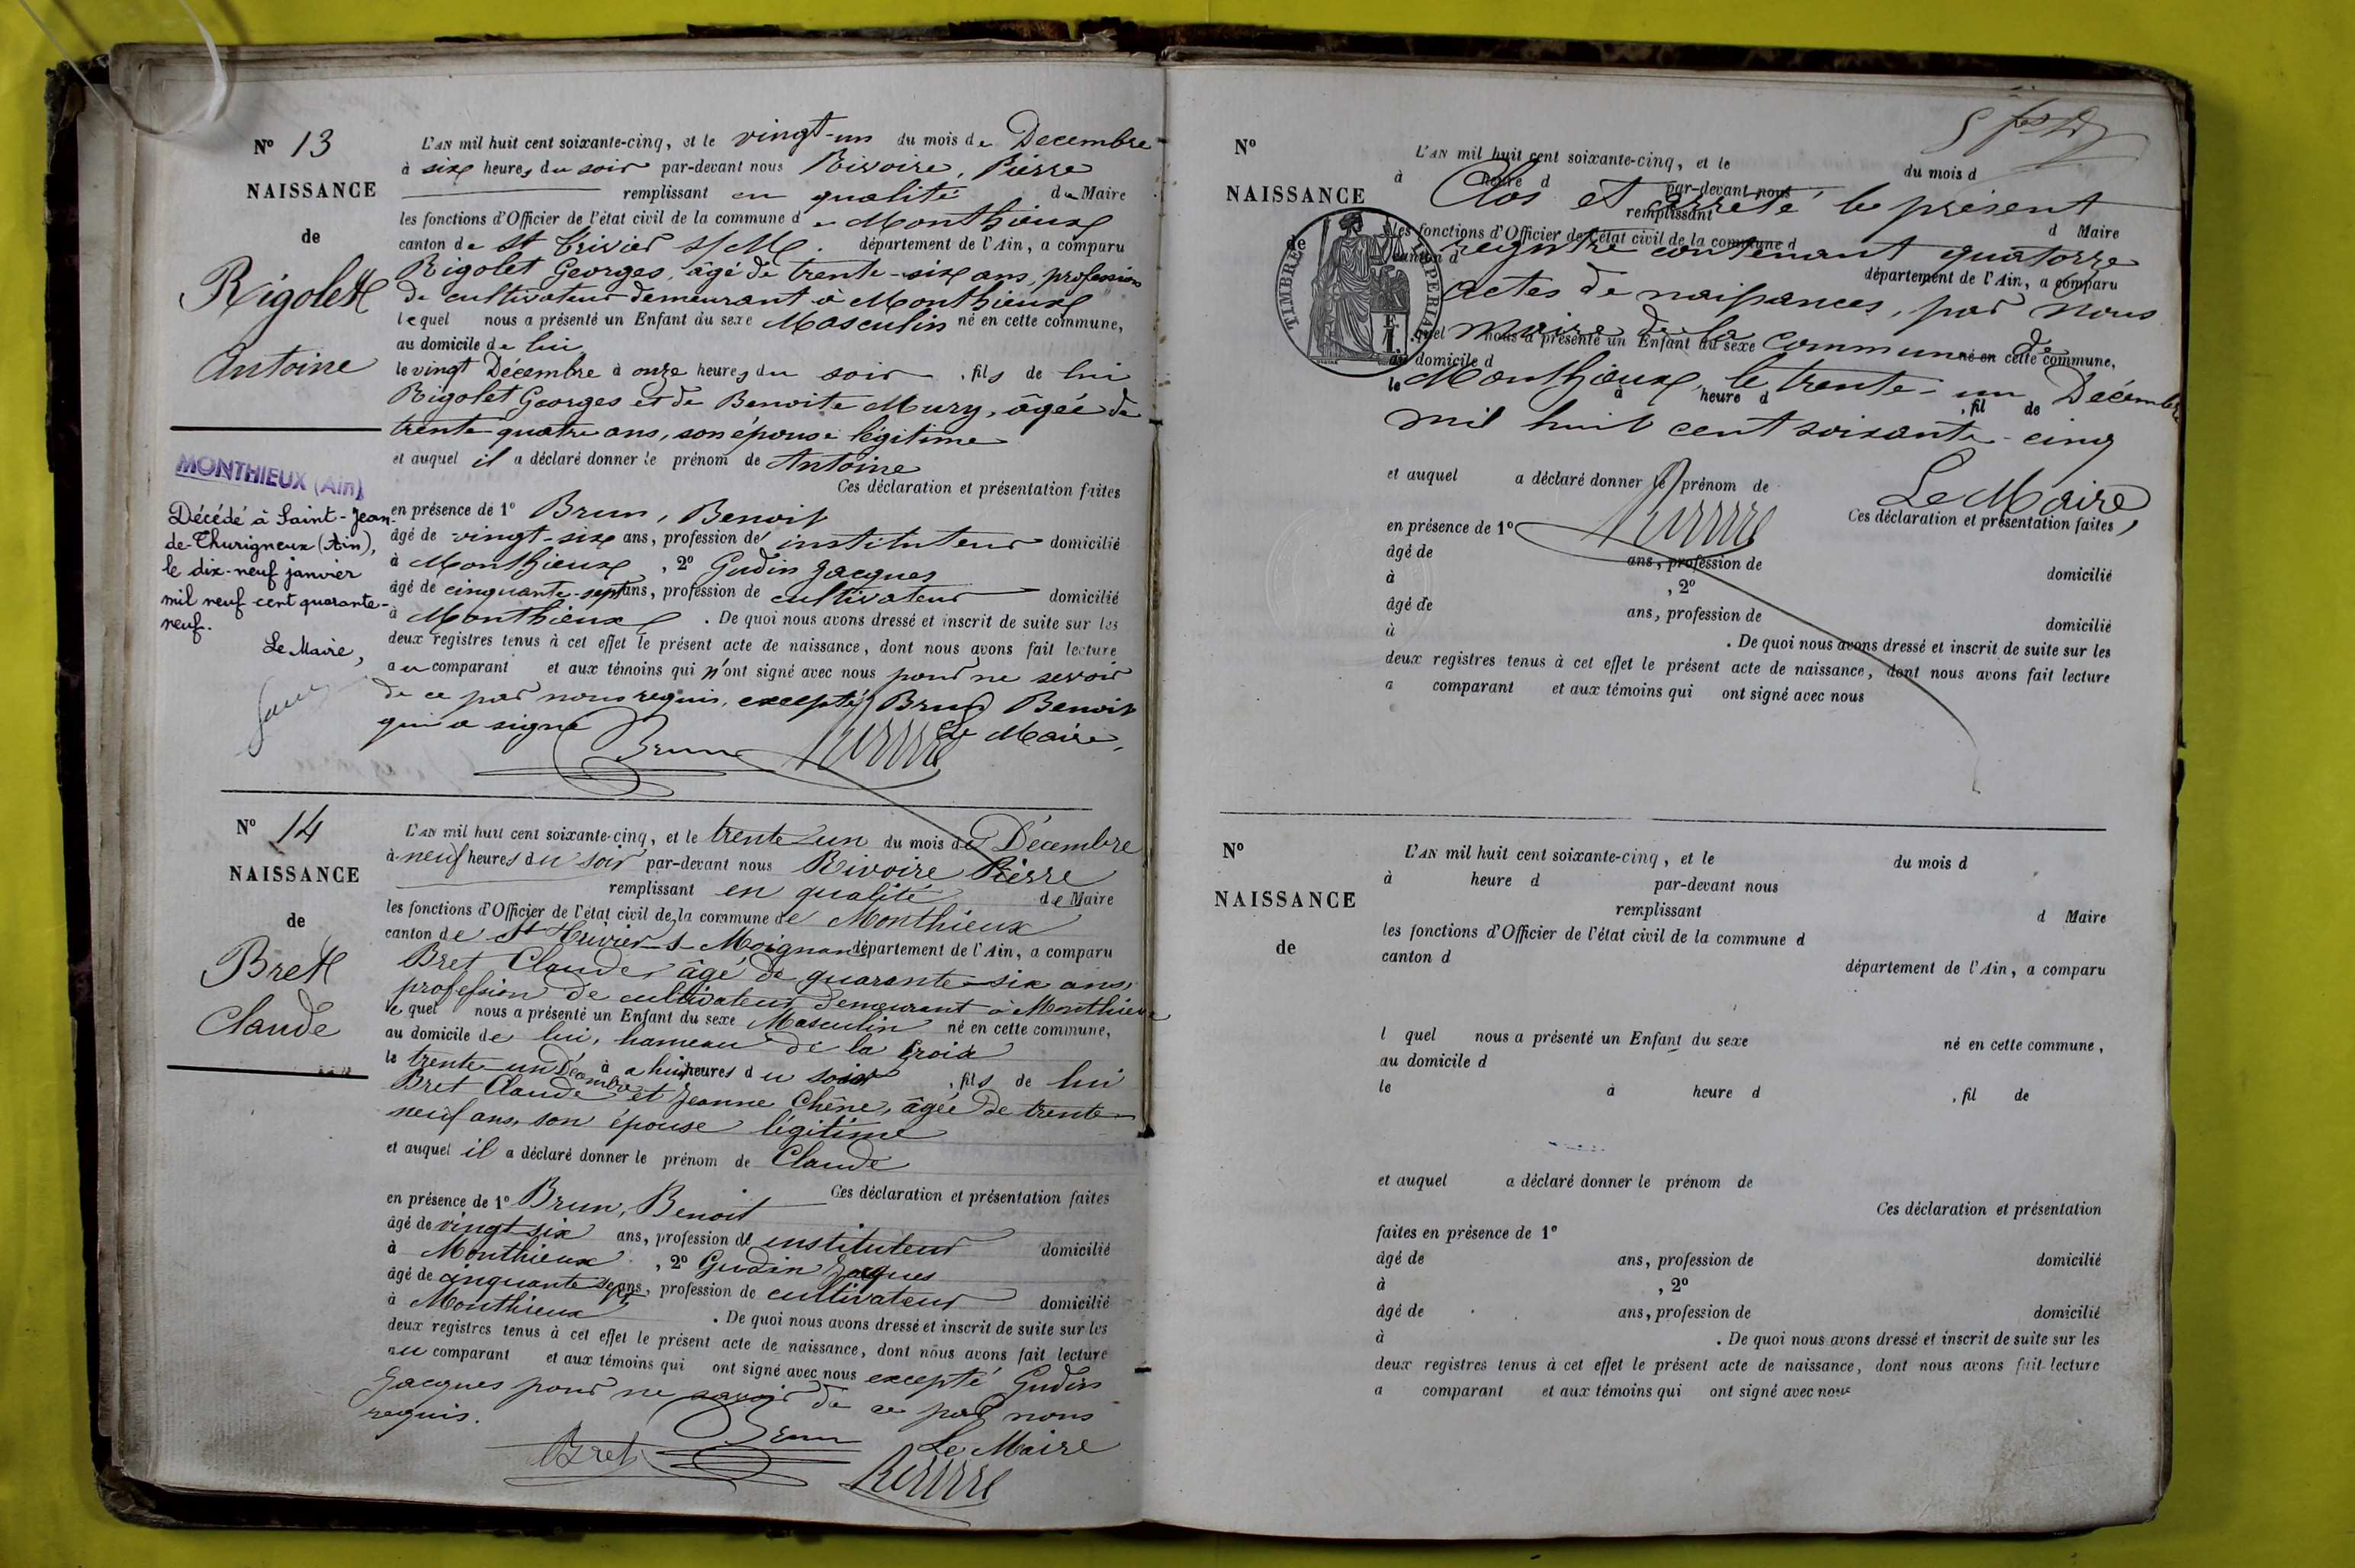 N° 13
NAISSANCE
de
Rigolet
Antoine
MONTHIEUX (Ain)
Décédé à Saint-Jean-
de-Thurigneux (Ain),
le dix-neuf janvier
mil neuf cent quarante-
neuf.
Le Maire,
L'AN mil huit cent soixante-cinq, et le vingt-un du mois de Decembre
à six heures du soir par-devant nous Rivoire, Pierre
remplissant en qualité de Maire
les fonctions d'Officier de l'état civil de la commune de Monthieux
canton de St Trivier s/M. département de l'Ain, a comparu
Rigolet Georges, âgé de trente-six ans, profession
de cultivateur demeurant à Monthieux
lequel nous a présenté un Enfant du sexe Masculin né en cette commune,
au domicile de lui
le vingt Décembre à onze heures du soir , fils de lui
Rigolet Georges et de Benoite Mury, âgée de
trente-quatre ans, son épouse légitime
et auquel il a déclaré donner le prénom de Antoine
Ces déclaration et présentation faites
en présence de 1° Brun, Benoit
âgé de vingt-six ans, profession de instituteur domicilié
à Monthieux , 2° Gudin Jacques
âgé de cinquante-sept ans, profession de cultivateur domicilié
à Monthieux . De quoi nous avons dressé et inscrit de suite sur les
deux registres tenus à cet effet le présent acte de naissance, dont nous avons fait lecture
au comparant et aux témoins qui n'ont signé avec nous pour ne savoir
de ce par nous requis, excepté Brun Benoit
qui a signé
Brun Le Maire,
N° 14
NAISSANCE
de
Bret
Claude
L'AN mil huit cent soixante-cinq, et le trente un du mois de Décembre
à neuf heures du soir par-devant nous Rivoire Pierre
remplissant en qualité de Maire
les fonctions d'Officier de l'état civil de la commune de Monthieux
canton de St Trivier s Moignans département de l'Ain, a comparu
Bret Claude, âgé de quarante-six ans,
profession de cultivateur demeurant à Monthieux
lequel nous a présenté un Enfant du sexe Masculin né en cette commune,
au domicile de lui, hameau de la Croix
le trente-un Décembre à huit heures du soir , fils de lui
Bret Claude et Jeanne Chêne, âgée de trente-
neuf ans, son épouse légitime
et auquel il a déclaré donner le prénom de Claude
Ces déclaration et présentation faites
en présence de 1° Brun, Benoit
âgé de vingt-six ans, profession de instituteur domicilié
à Monthieux , 2° Gudin Jacques
âgé de cinquante sept ans, profession de cultivateur domicilié
à Monthieux . De quoi nous avons dressé et inscrit de suite sur les
deux registres tenus à cet effet le présent acte de naissance, dont nous avons fait lecture
au comparant et aux témoins qui ont signé avec nous excepté Gudin
Jacques pour ne savoir de ce par nous
requis.
Bret Brun Le Maire
N°
NAISSANCE
de
TIMBRE IMPERIAL
L'AN mil huit cent soixante-cinq, et le du mois d
à heure d par-devant nous
Clos et arrêté le présent
remplissant d Maire
les fonctions d'Officier de l'état civil de la commune d
registre contenant quatorze
canton d département de l'Ain, a comparu
actes de naissances, par nous
maire de la commune de
l quel nous a présenté un Enfant du sexe né en cette commune,
au domicile d
Monthieux, le trente-un Décembre
le à heure d , fil de
mil huit cent soixante-cinq
et auquel a déclaré donner le prénom de
Le Maire,
Ces déclaration et présentation faites
en présence de 1°
âgé de ans, profession de domicilié
à , 2°
âgé de ans, profession de domicilié
à . De quoi nous avons dressé et inscrit de suite sur les
deux registres tenus à cet effet le présent acte de naissance, dont nous avons fait lecture
a comparant et aux témoins qui ont signé avec nous
N°
NAISSANCE
de
L'AN mil huit cent soixante-cinq, et le du mois d
à heure d par-devant nous
remplissant d Maire
les fonctions d'Officier de l'état civil de la commune d
canton d département de l'Ain, a comparu
l quel nous a présenté un Enfant du sexe né en cette commune,
au domicile d
le à heure d , fil de
et auquel a déclaré donner le prénom de
Ces déclaration et présentation
faites en présence de 1°
âgé de ans, profession de domicilié
à , 2°
âgé de ans, profession de domicilié
à . De quoi nous avons dressé et inscrit de suite sur les
deux registres tenus à cet effet le présent acte de naissance, dont nous avons fait lecture
a comparant et aux témoins qui ont signé avec nous